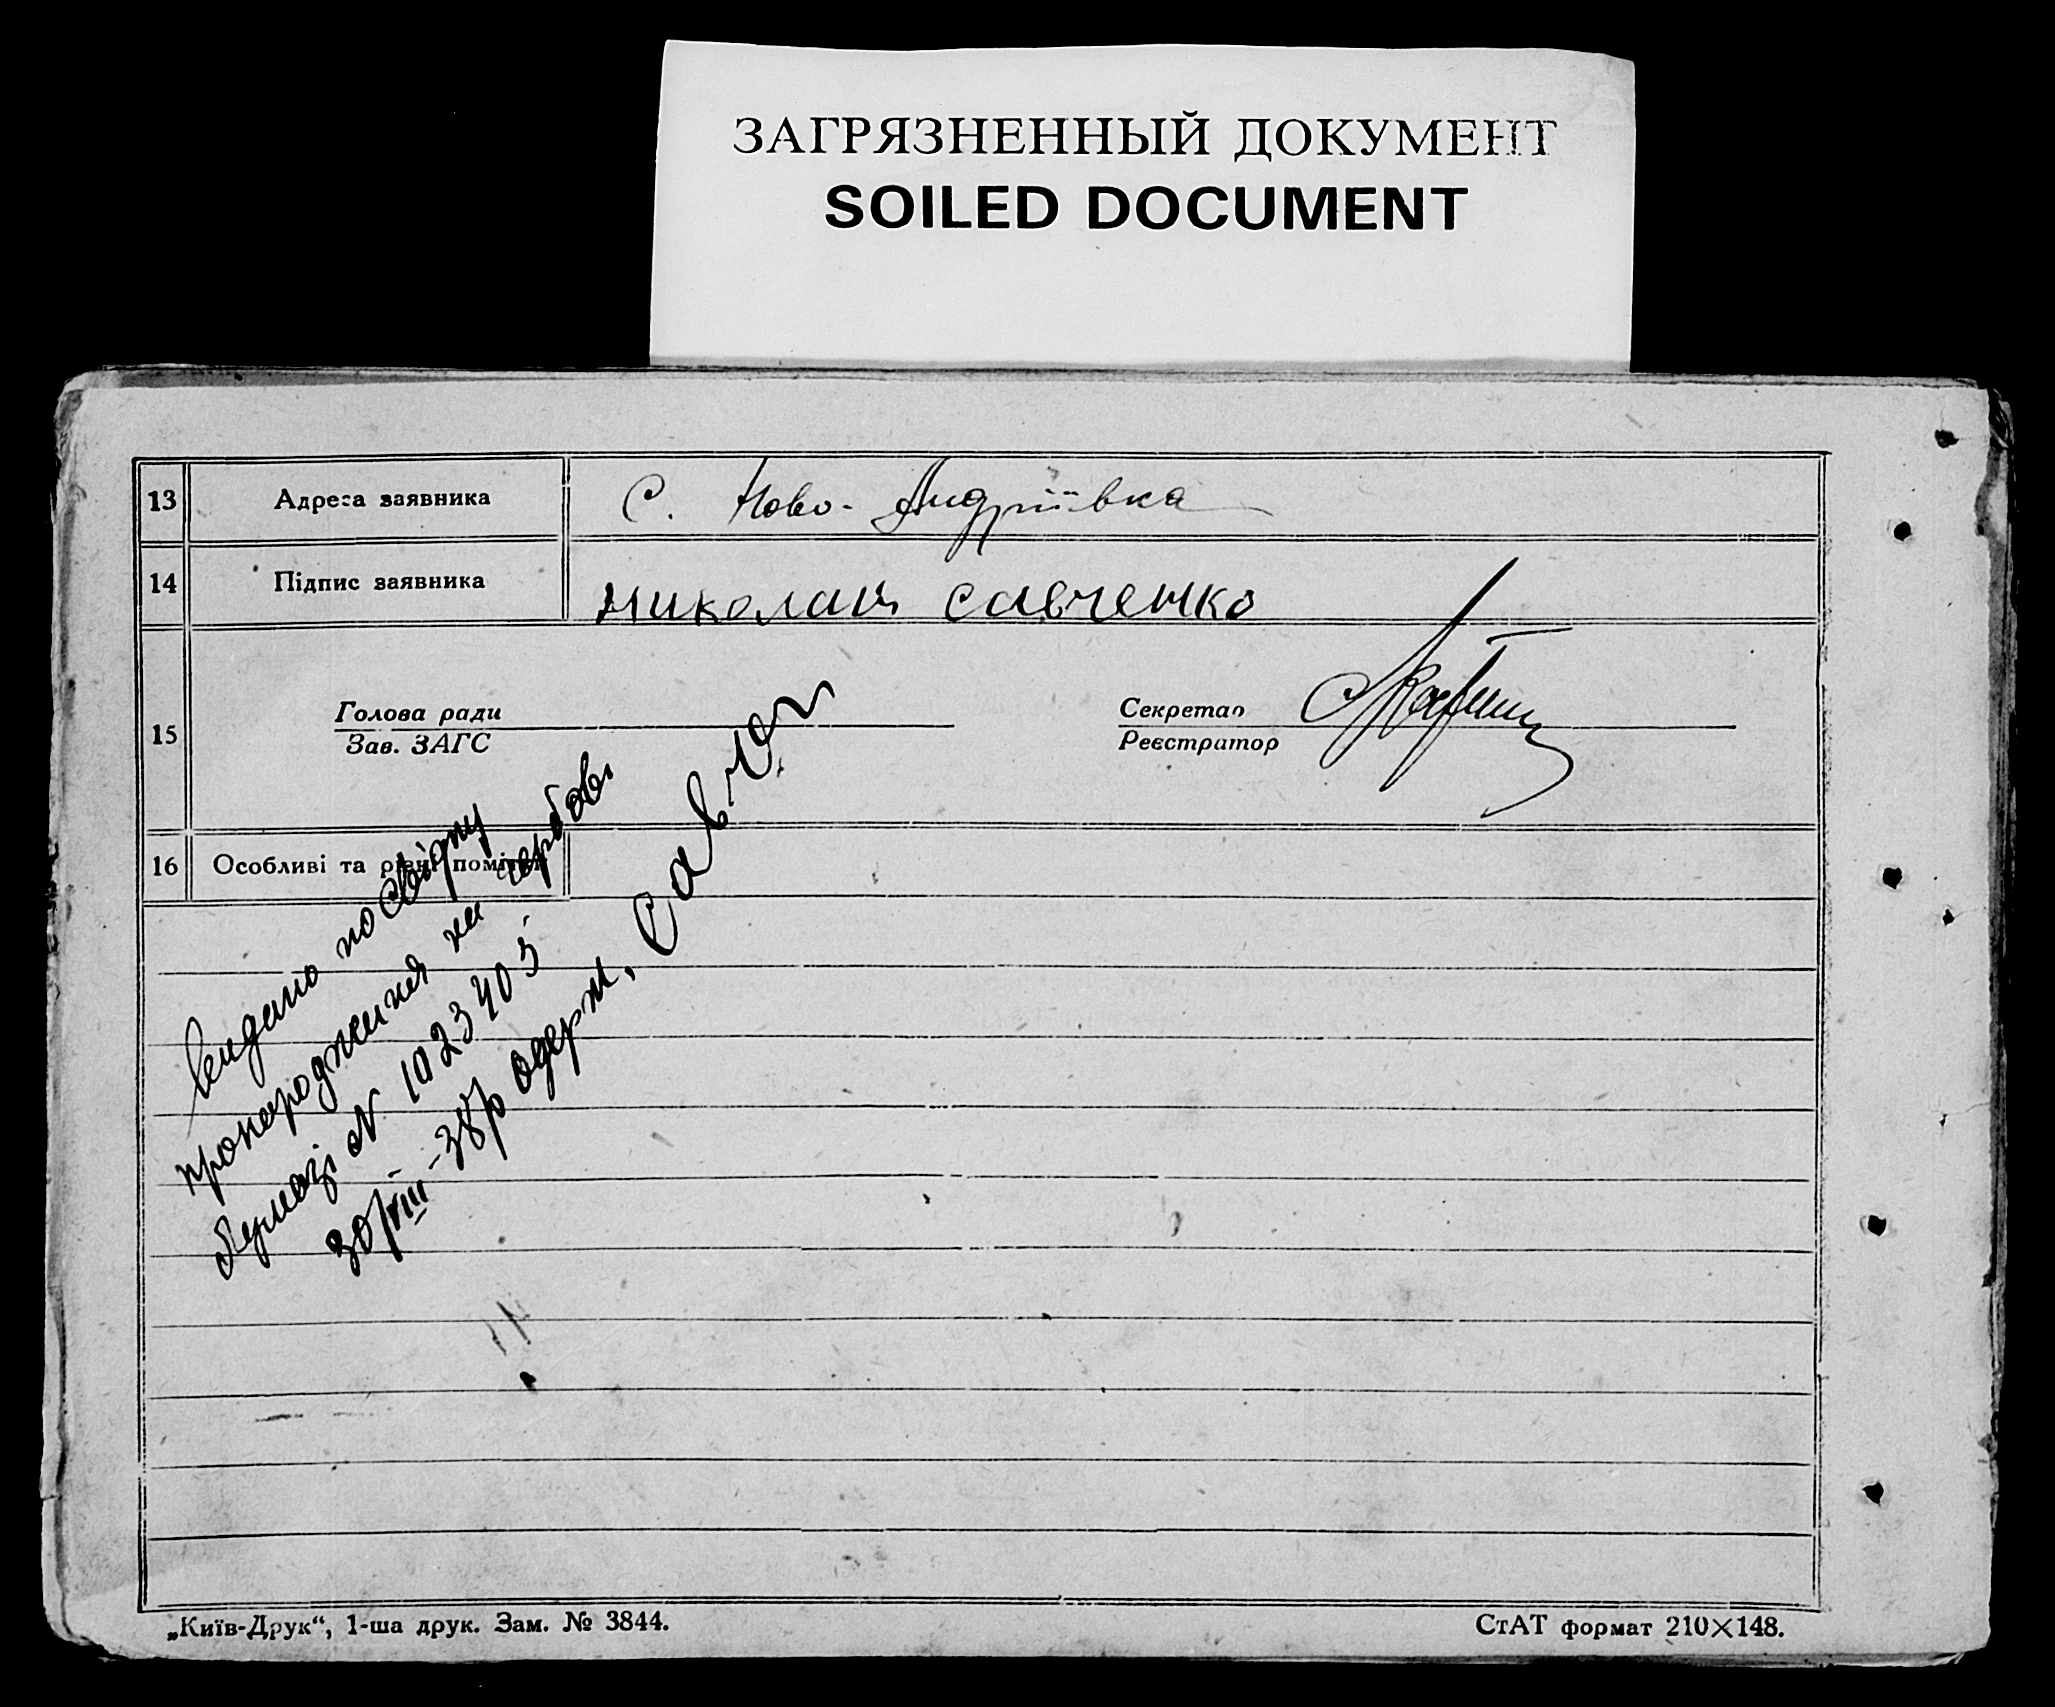 ЗАГРЯЗНЕННЫЙ ДОКУМЕНТ
SOILED DOCUMENT
13 Адреса заявника С. Ново-Андріївка
14 Підпис заявника Николай Савченко
15 Голова ради
Зав. ЗАГС
Секретар
Реєстратор
16 Особливі та різні помітки
видано посвідку
про народження на гербові
бумазі N 1023403
30/VIII-38р одерж. Савчен
„Київ-Друк“, 1-ша друк. Зам. № 3844.
СтАТ формат 210×148.